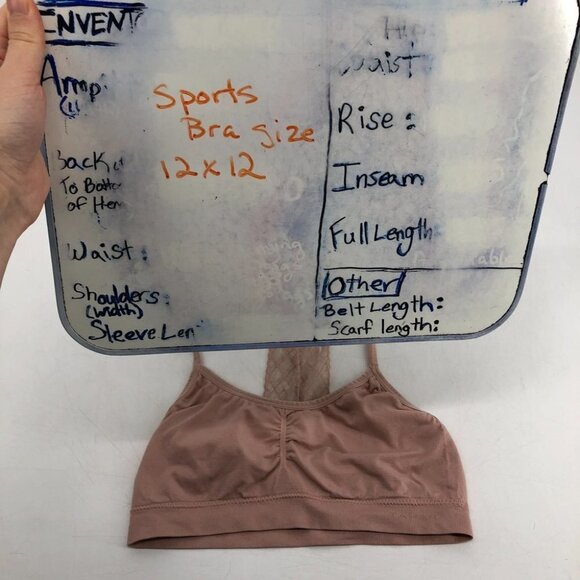 INVENT
Armp
Sports
Bra size
12x12
Back
To Bottom
of Hem
Waist:
Shoulders:
(width)
Sleeve Len
Hip
Waist
Rise:
Inseam
Full Length
Other
Belt Length:
Scarf length: